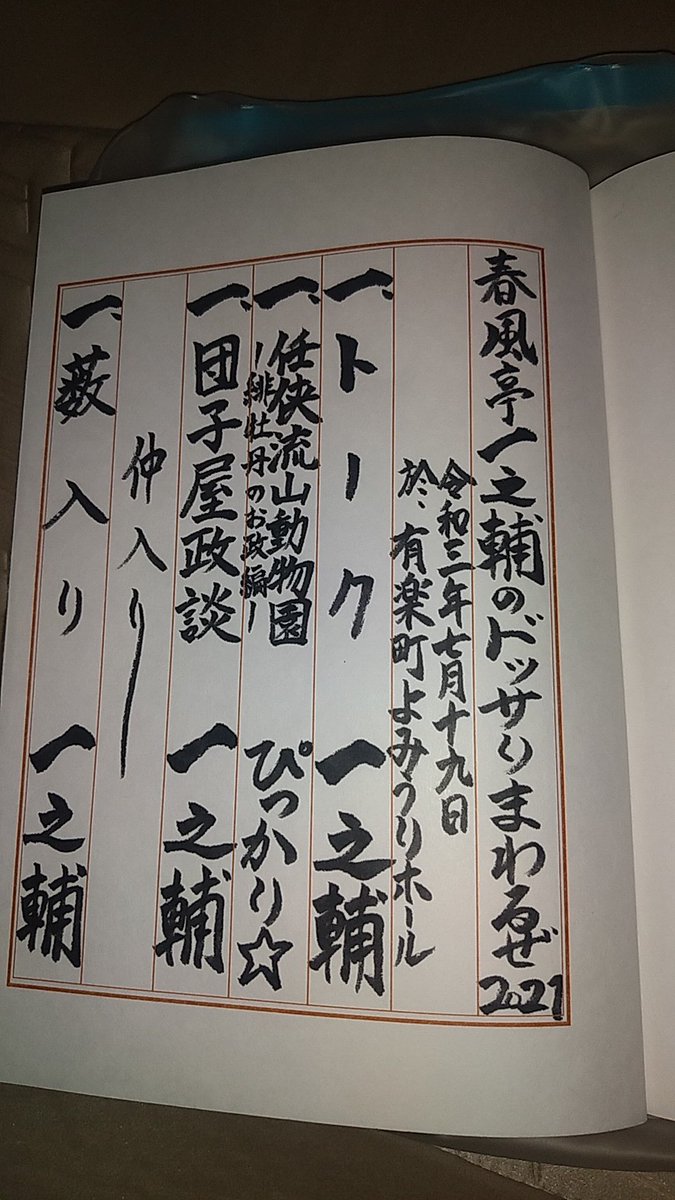 春風亭一之輔のドッサりまわるぜ2021
令和三年七月十九日
於：有楽町よみうりホール
一、トーク 一之輔
一、任侠流山動物園 ぴっかり☆
ー緋牡丹のお政編ー
一、団子屋政談 一之輔
仲入り
一、薮入り 一之輔